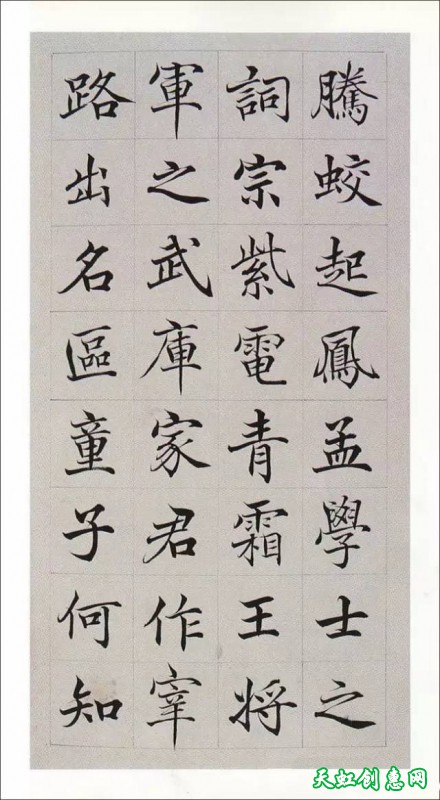 騰蛟起鳳孟學士之
詞宗紫電青霜王將
軍之武庫家君作宰
路出名區童子何知
天虹创惠网